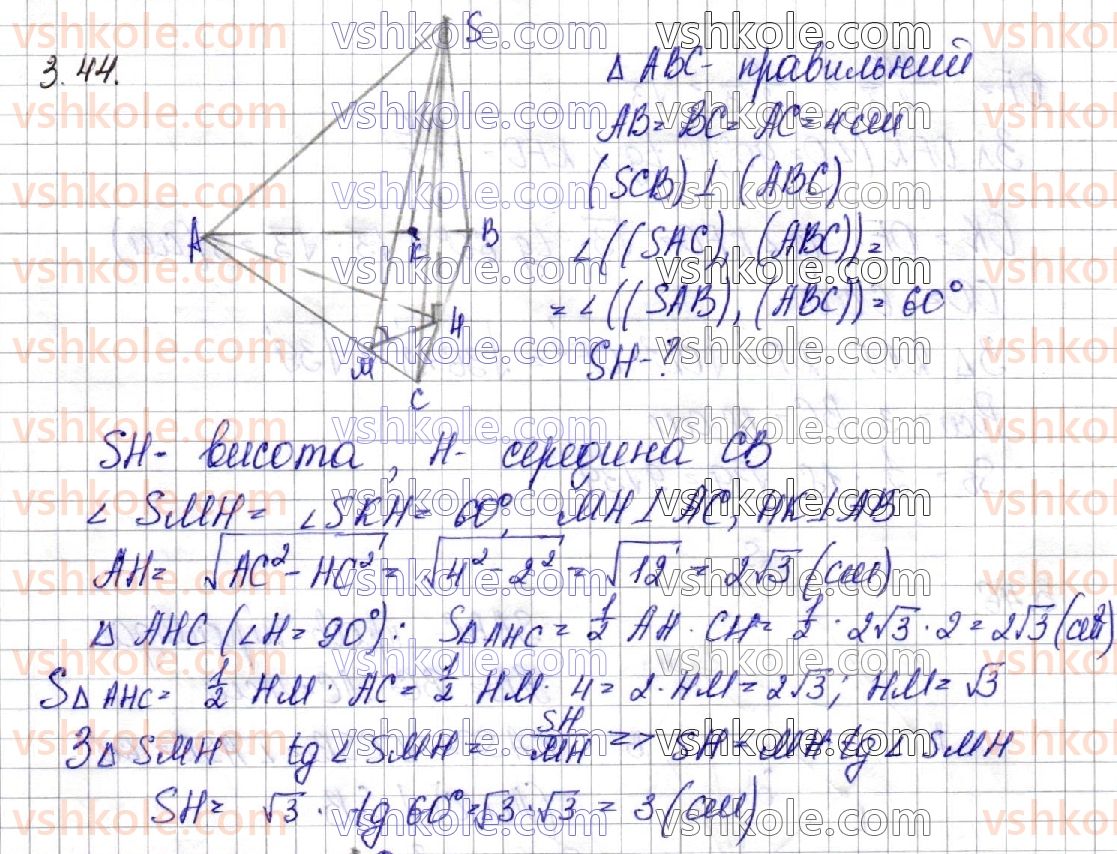 3.44.
S
A
K
B
H
M
C
△ ABC - правильний
AB = BC = AC = 4 см
(SCB) ⊥ (ABC)
∠((SAC), (ABC)) =
= ∠((SAB), (ABC)) = 60°
SH - ?
SH - висота, H - середина CB
∠ SMH = ∠SKH = 60°, MH ⊥ AC, HK ⊥ AB
AH = √(AC² - HC²) = √(4² - 2²) = √12 = 2√3 (см)
△ AHC (∠H = 90°): S△AHC = 1/2 AH · CH = 1/2 · 2√3 · 2 = 2√3 (см²)
S△AHC = 1/2 HM · AC = 1/2 HM · 4 = 2 · HM = 2√3; HM = √3
З △ SMH tg ∠ SMH = SH/MH => SH = MH · tg ∠ SMH
SH = √3 · tg 60° = √3 · √3 = 3 (см)
vshkole.com